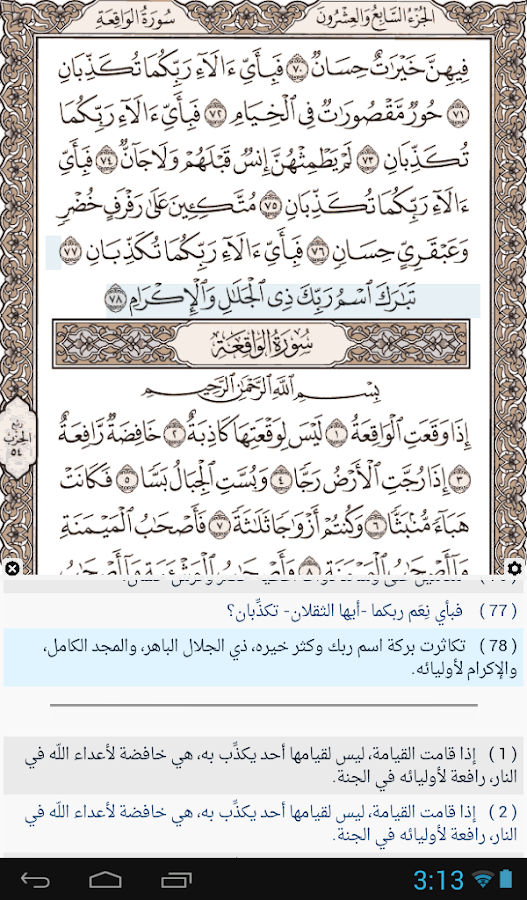 الجزء السابع والعشرون
سورة الواقعة
فِيهِنَّ خَيْرَٰتٌ حِسَانٌ ٧٠ فَبِأَيِّ ءَالَآءِ رَبِّكُمَا تُكَذِّبَانِ
٧١ حُورٌ مَّقْصُورَٰتٌ فِي ٱلْخِيَامِ ٧٢ فَبِأَيِّ ءَالَآءِ رَبِّكُمَا
تُكَذِّبَانِ ٧٣ لَمْ يَطْمِثْهُنَّ إِنسٌ قَبْلَهُمْ وَلَا جَآنٌّ ٧٤ فَبِأَيِّ
ءَالَآءِ رَبِّكُمَا تُكَذِّبَانِ ٧٥ مُتَّكِـِٔينَ عَلَىٰ رَفْرَفٍ خُضْرٍ
وَعَبْقَرِيٍّ حِسَانٍ ٧٦ فَبِأَيِّ ءَالَآءِ رَبِّكُمَا تُكَذِّبَانِ ٧٧
تَبَٰرَكَ ٱسْمُ رَبِّكَ ذِي ٱلْجَلَٰلِ وَٱلْإِكْرَامِ ٧٨
سورة الواقعة
بِسْمِ ٱللَّهِ ٱلرَّحْمَٰنِ ٱلرَّحِيمِ
إِذَا وَقَعَتِ ٱلْوَاقِعَةُ ١ لَيْسَ لِوَقْعَتِهَا كَاذِبَةٌ ٢ خَافِضَةٌ رَّافِعَةٌ
٣ إِذَا رُجَّتِ ٱلْأَرْضُ رَجًّا ٤ وَبُسَّتِ ٱلْجِبَالُ بَسًّا ٥ فَكَانَتْ
هَبَآءً مُّنۢبَثًّا ٦ وَكُنتُمْ أَزْوَٰجًا ثَلَٰثَةً ٧ فَأَصْحَٰبُ ٱلْمَيْمَنَةِ
مَآ أَصْحَٰبُ ٱلْمَيْمَنَةِ ٨ وَأَصْحَٰبُ ٱلْمَشْـَٔمَةِ مَآ أَصْحَٰبُ
ربع
الحزب
٥٤
(77) فبأي نِعَم ربكما -أيها الثقلان- تكذِّبان؟
(78) تكاثرت بركة اسم ربك وكثر خيره، ذي الجلال الباهر، والمجد الكامل،
والإكرام لأوليائه.
(1) إذا قامت القيامة، ليس لقيامها أحد يكذِّب به، هي خافضة لأعداء الله في
النار، رافعة لأوليائه في الجنة.
(2) إذا قامت القيامة، ليس لقيامها أحد يكذِّب به، هي خافضة لأعداء الله في
النار، رافعة لأوليائه في الجنة.
3:13